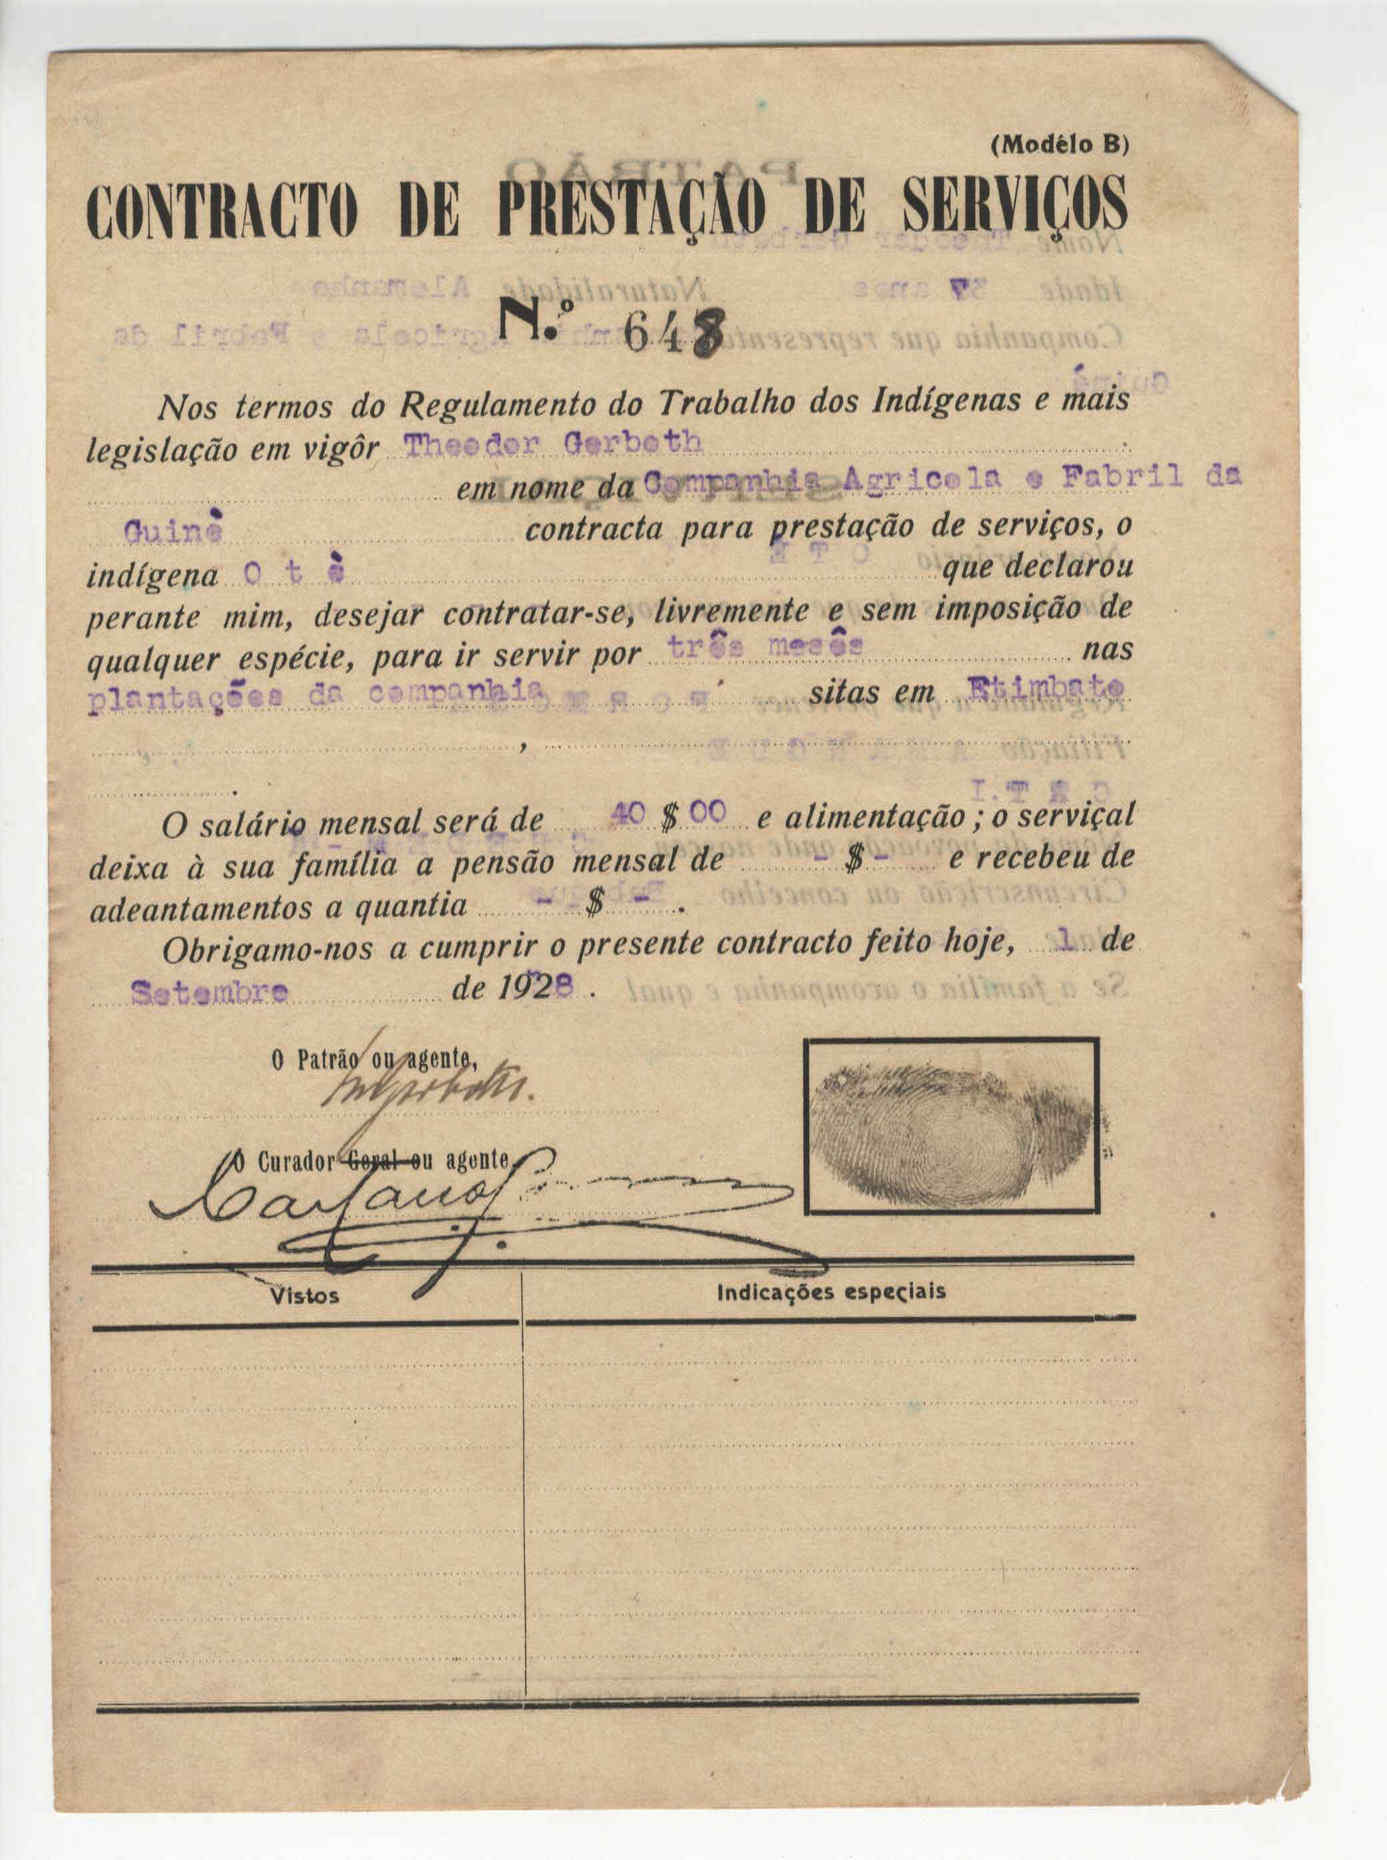 (Modêlo B)
CONTRACTO DE PRESTAÇÃO DE SERVIÇOS
N.º 648
Nos termos do Regulamento do Trabalho dos Indígenas e mais
legislação em vigôr Theodor Gerbeth
em nome da Companhia Agricola e Fabril da
Guinè contracta para prestação de serviços, o
indígena O t è que declarou
perante mim, desejar contratar-se, livremente e sem imposição de
qualquer espécie, para ir servir por três mesês nas
plantações da companhia sitas em Etimbato
,
.
O salário mensal será de 40 $ 00 e alimentação; o serviçal
deixa à sua família a pensão mensal de - $ - e recebeu de
adeantamentos a quantia - $ - .
Obrigamo-nos a cumprir o presente contracto feito hoje, 1 de
Setembro de 1928 .
O Patrão ou agente,
O Curador Geral ou agente,
Vistos Indicações especiais